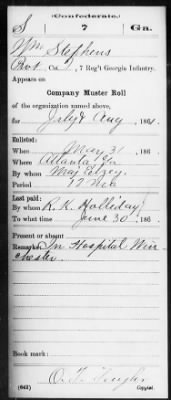 (Confederate.)
S 7 Ga.
Wm Stephens
Pvt Co. , 7 Reg't Georgia Infantry.
Appears on
Company Muster Roll
of the organization named above,
for July & Aug , 1861.
Enlisted:
When May 31 , 186 .
Where Atlanta Ga
By whom Maj Elzey
Period 12 Mo
Last paid:
By whom R. K. Holliday
To what time June 30 , 186 .
Present or absent
Remarks: In Hospital Win
chester.
Book mark:
(642) Copyist.